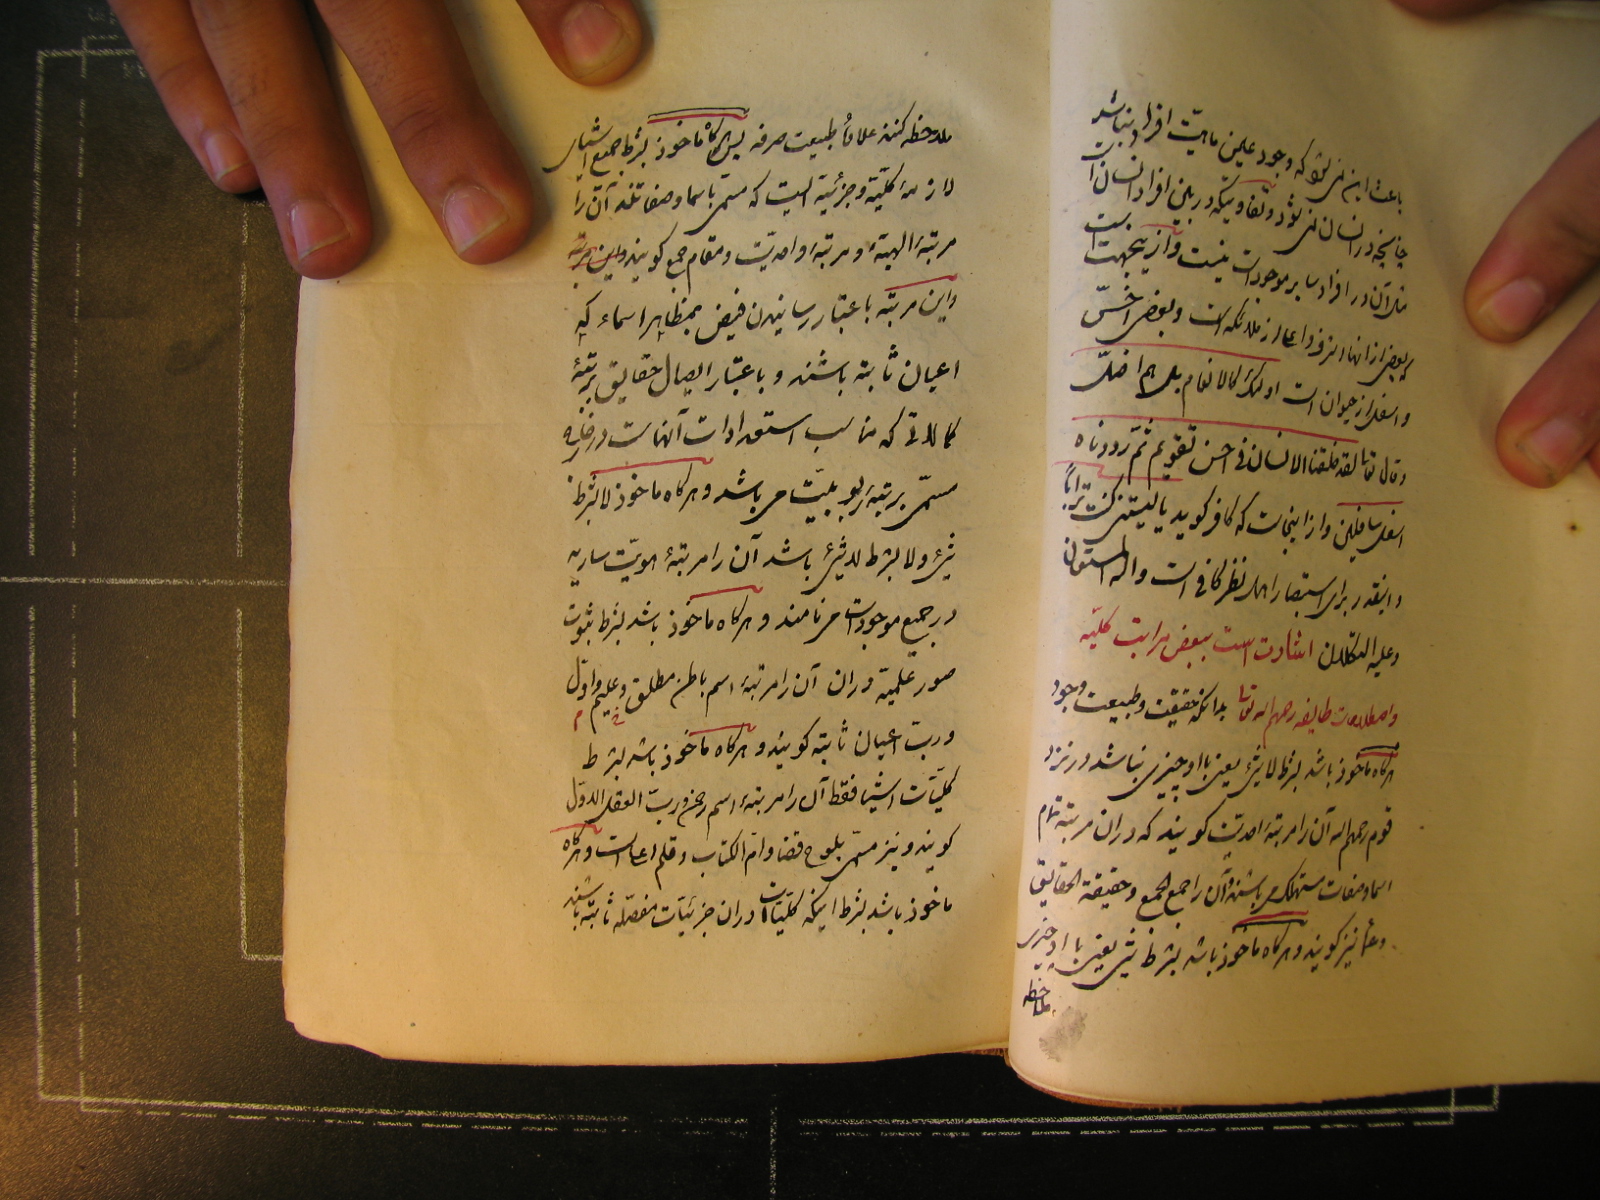 باعث این نمی‌شود که وجود عین ماهیت افراد نباشد
چنانچه در انسان نمی‌شود و تفاوتیکه در بین افراد انسان است
مثل آن در افراد سایر موجودات نیست و از اینجهت است
که بعضی از انها اشرف و اعلا از ملائکه است و بعضی اخسّ
و اسفل از حیوان است اولئک کالانعام بل هم اضلّ
و قال تعا لقد خلقنا الانسان فی احسن تقویم ثمّ رددناه
اسفل سافلین و از اینجاست که کافر گوید یا لیتنی کنت تراباً
و اینقدر برای استبصار اهل نظر کافی است والله المستعان
وعلیه التکلان اشارت است ببعض مراتب کلیّه
و اصطلاحات طایفه رحمهم الله تعا بدانکه حقیقت و طبیعت وجود
هرگاه ماخوذ باشد بشرط لا شیئ یعنی با او چیزی نباشد در نزد
قوم رحمهم الله آن را مرتبهٔ احدیّت گویند که در ان مرتبه تمام
اسما و صفات مستهلک می‌باشند و آن را جمع الجمع و حقیقة الحقایق
و عما نیز گویند و هرگاه ماخوذ باشد بشرط شیئ یعنی با او چیزی
ملاحظه
ملاحظه کنند علاوهٔ طبیعت صرفه پس هرگاه ماخوذ بشرط جمیع اشیای
لازمهٔ کلیّة و جزئیّة ایست که مسمّی باسما و صفاتند آن را
مرتبهٔ الهیّة و مرتبهٔ واحدیّت و مقام جمع گویند و این مرتبه
و این مرتبه باعتبار رسانیدن فیض بمظاهر اسماء که
اعیان ثابته باشند و باعتبار ایصال حقایق بمرتبهٔ
کمالاتی که مناسب استعدادات آنهاست در خارج
مسمّی بمرتبهٔ ربوبیّت می‌باشد و هرگاه ماخوذ لا بشرط
شیئ و لا بشرط لا شیئ باشد آن را مرتبهٔ هویّت ساریه
در جمیع موجودات می‌نامند و هرگاه ماخوذ باشد بشرط ثبوت
صور علمیّه در ان آن را مرتبهٔ اسم باطن مطلق و علیم و اوّل
و ربّ اعیان ثابته گویند و هرگاه ماخوذ باشد بشرط
کلیّات اشیا فقط آن را مرتبهٔ اسم رحمن و ربّ العقل الاوّل
گویند و نیز مسمّی بلوح قضا و امّ الکتاب و قلم اعلاست و هرگاه
ماخوذ باشد بشرط اینکه کلیّات در ان جزئیّات مفصّله ثابته باشند